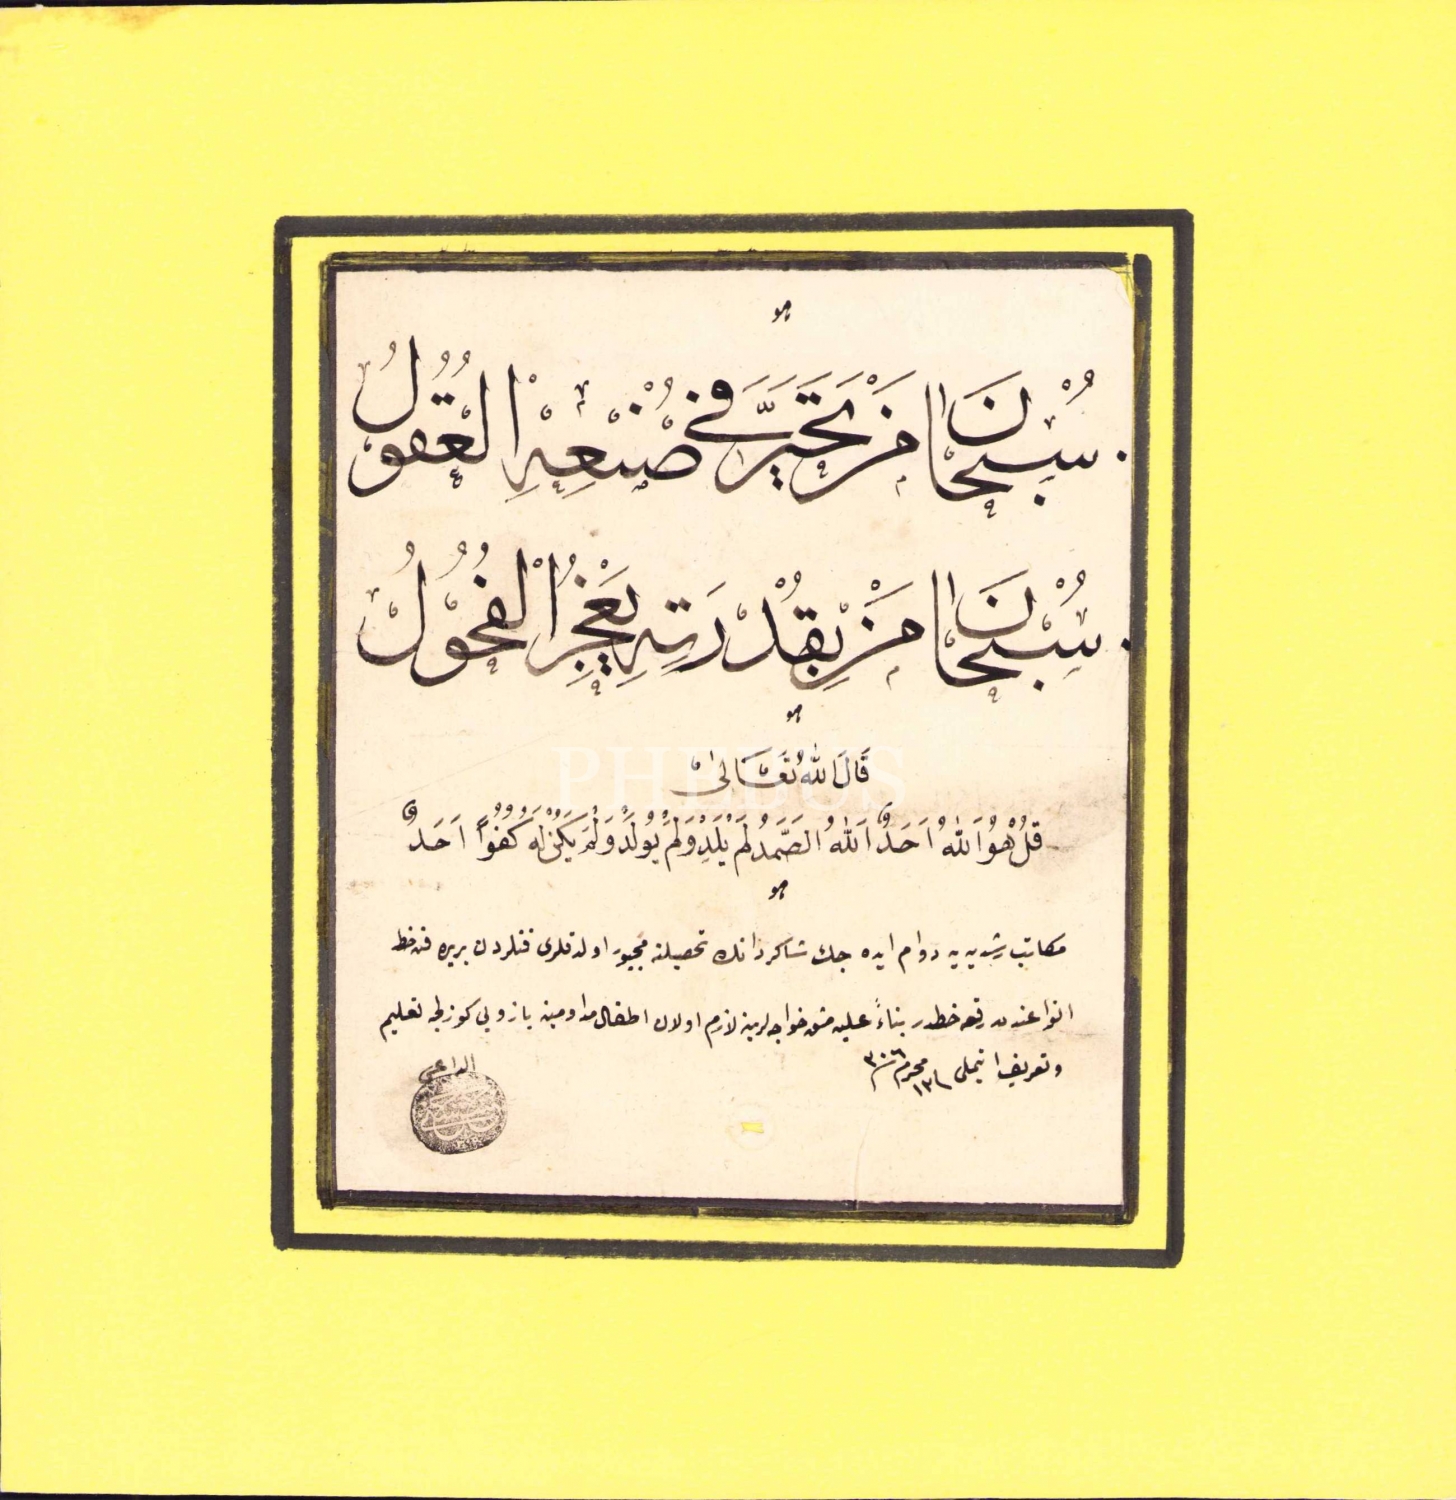 سُبْحَانَ مَنْ تَحَيَّرَ فِي صُنْعِهِ الْعُقُولُ
سُبْحَانَ مَنْ بِقُدْرَتِهِ يَعْجِزُ الْفُحُولُ
PHEBUS
قَالَ اللهُ تَعَالٰى
قُلْ هُوَ اللهُ اَحَدٌ اَللهُ الصَّمَدُ لَمْ يَلِدْ وَلَمْ يُولَدْ وَلَمْ يَكُنْ لَهُ كُفُوًا اَحَدٌ
مكاتب رشديه يه دوام ايده جك شاكردانك تحصيلنه مجبور اولدقلرى فنلردن بريده فن خط
انواعندن رقعه خطدر بناءً عليه مشق خواجه لرينه لازم اولان اطفال مداومينه يازويى كوزلجه تعليم
وتعريف اتيملى ١٣ محرم ٣٠٦
الداعى